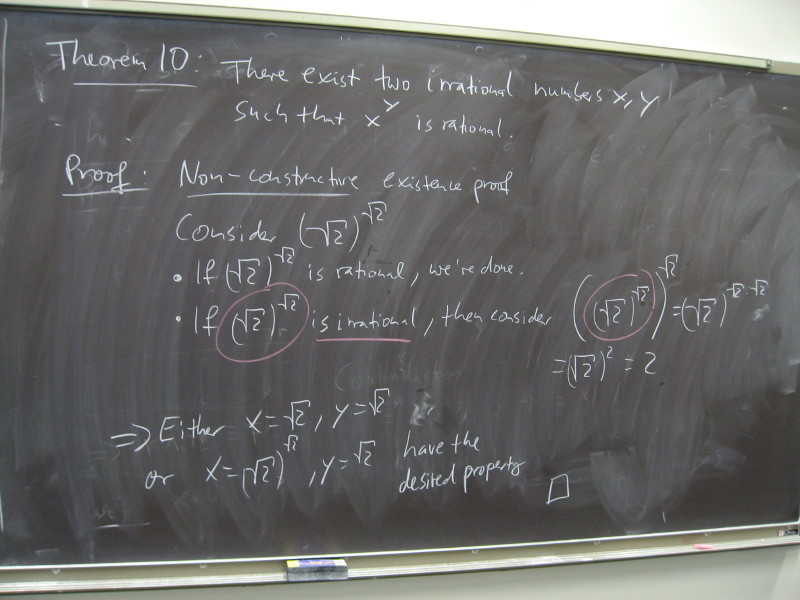 Theorem 10: There exist two irrational numbers x, y
such that x^y is rational.
Proof: Non-constructive existence proof
Consider (√2)^√2
• If (√2)^√2 is rational, we're done.
• If (√2)^√2 is irrational, then consider ((√2)^√2)^√2 = (√2)^√2·√2
= (√2)^2 = 2
⇒ Either x = √2, y = √2
or x = (√2)^√2, y = √2 have the
desired property □